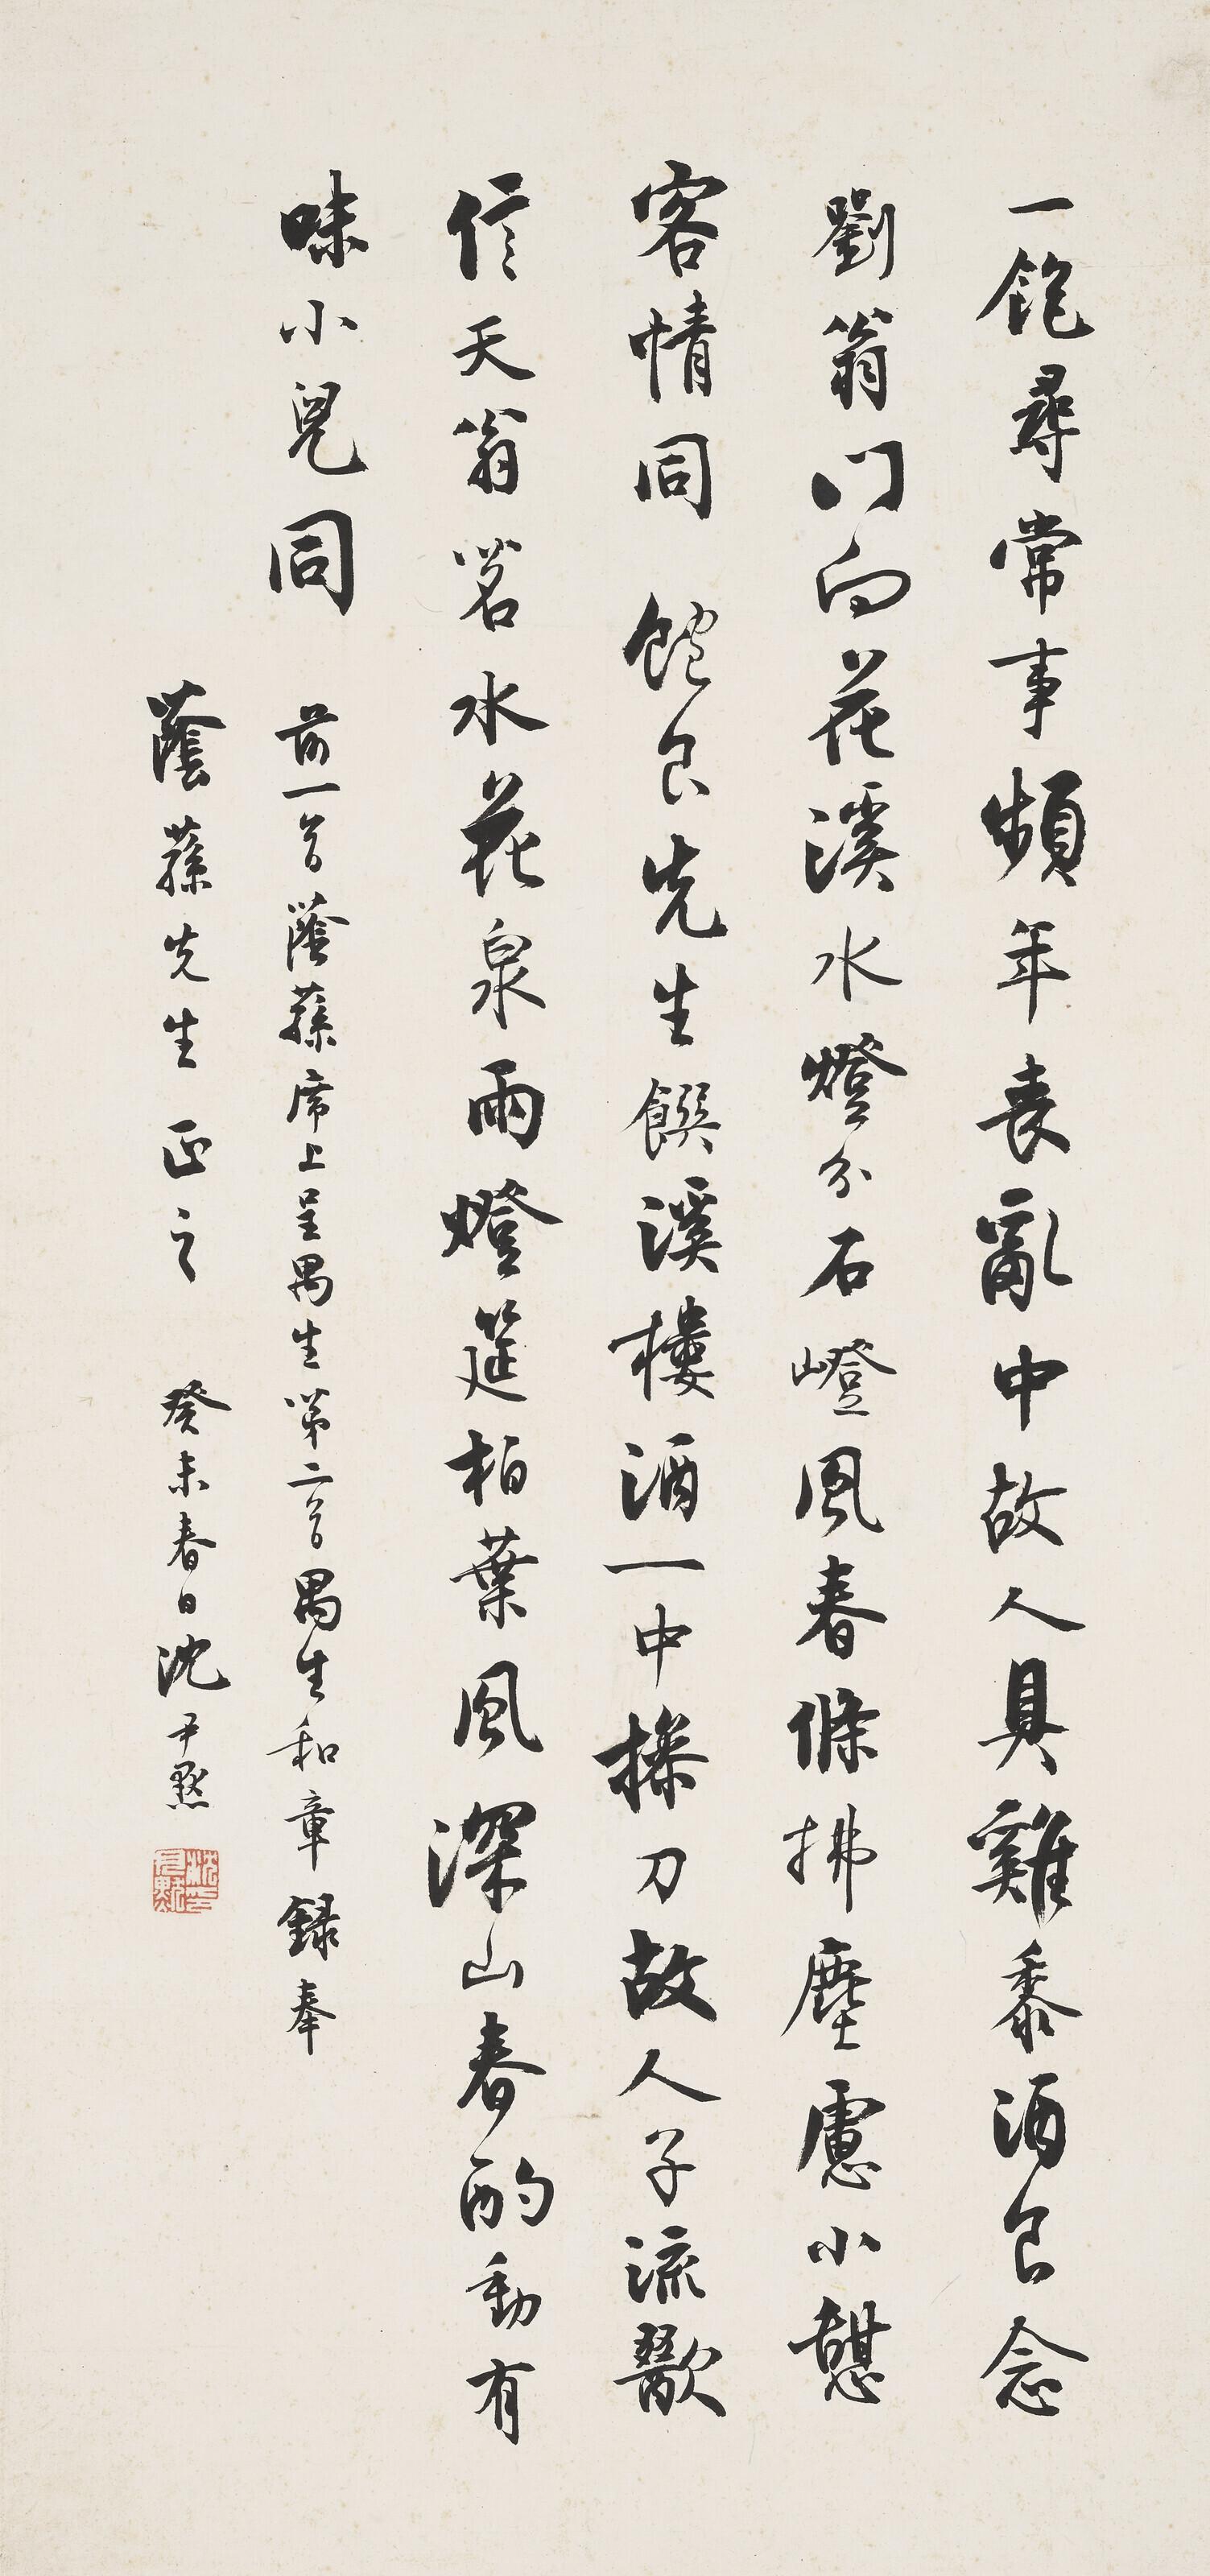 一飽尋常事頻年喪亂中故人具雞黍酒食念
劉翁門向花溪水燈分石嶝風春條拂塵慮小憩
客情同 飽食先生饌溪樓酒一中操刀故人子流歠
信天翁茗水花泉雨燈筵柏葉風深山春酌動有
味小兒同
前一首蔭蓀席上呈禺生第二首禺生和章錄奉
蔭蓀先生正之 癸未春日沈尹默
沈印尹默